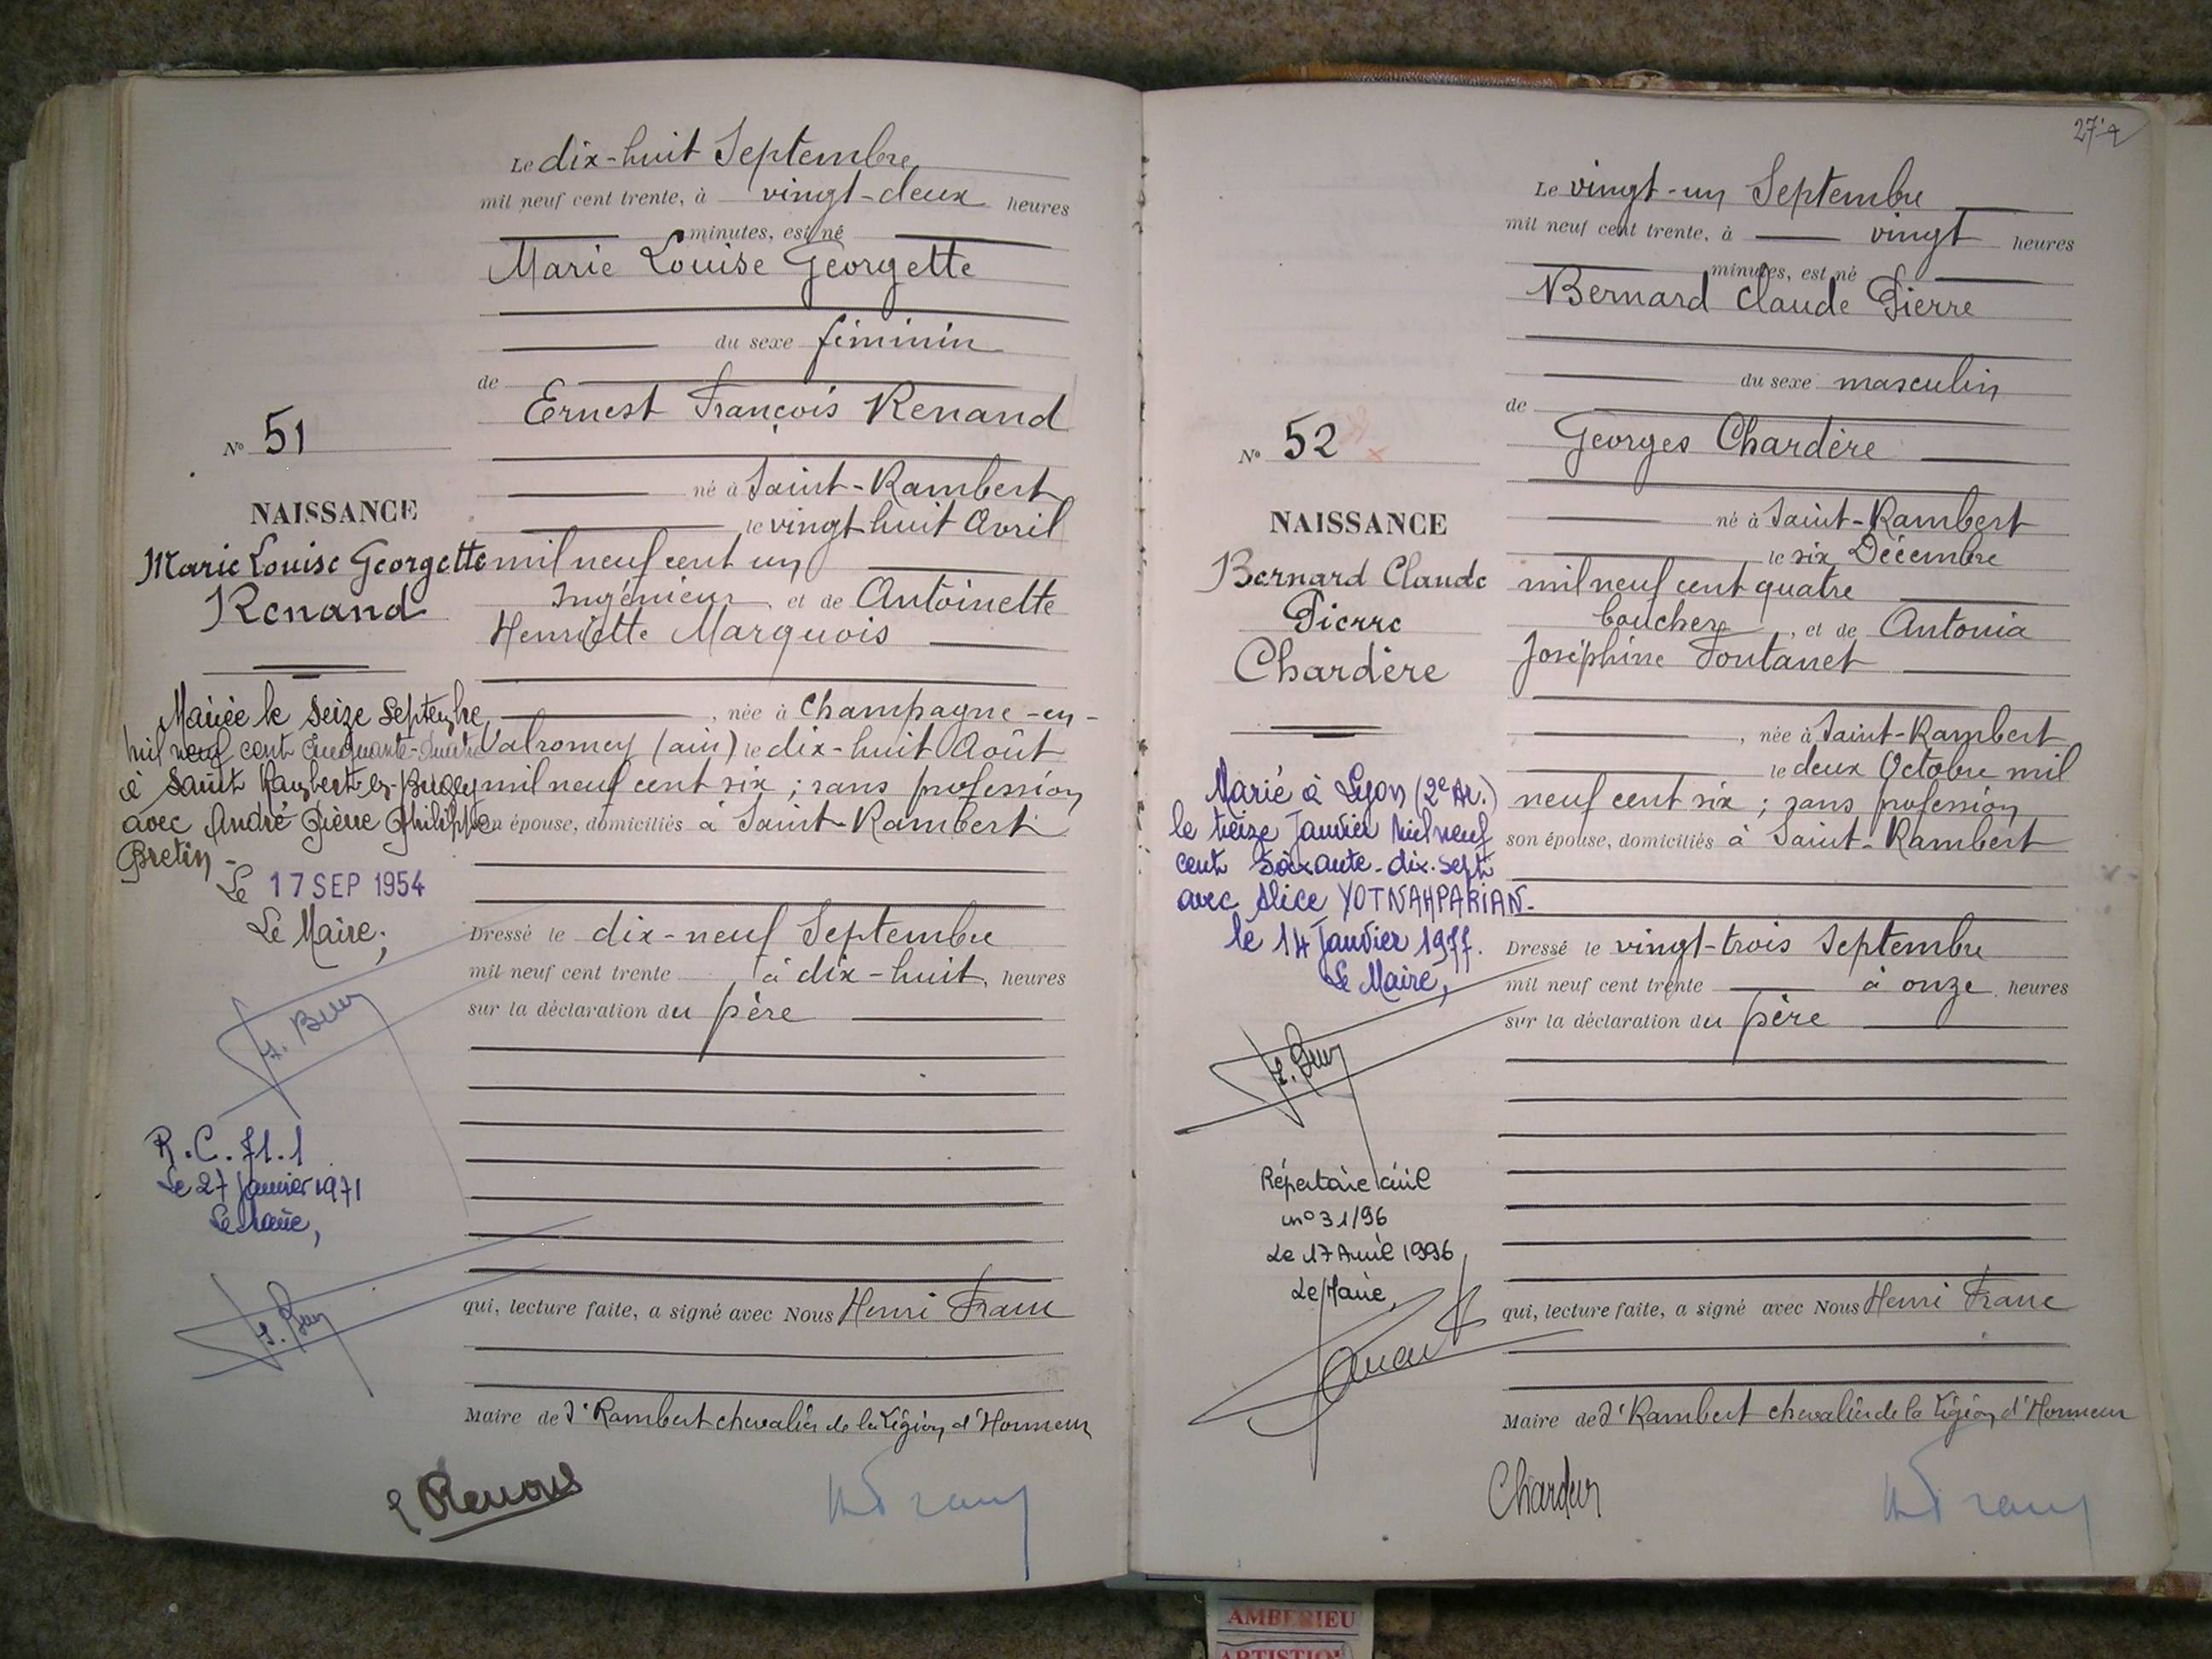 Le dix-huit Septembre
mil neuf cent trente, à vingt-deux heures
minutes, est né
Marie Louise Georgette
du sexe féminin
de
Ernest François Renand
né à Saint-Rambert
le vingt huit Avril
mil neuf cent un
Ingénieur et de Antoinette
Henriette Marquois
, née à Champagne-en-
Valromey (ain) le dix-huit Août
mil neuf cent six ; sans profession
son épouse, domiciliés à Saint-Rambert
Dressé le dix-neuf Septembre
mil neuf cent trente à dix-huit, heures
sur la déclaration du père
qui, lecture faite, a signé avec Nous Henri Franc
Maire de St Rambert chevalier de la Légion d'Honneur
N° 51
NAISSANCE
Marie Louise Georgette
Renand
Mariée le seize Septembre
mil neuf cent cinquante-quatre
à Saint Rambert-en-Bugey
avec André Pierre Philippe
Bretin -
Le 17 SEP 1954
Le Maire,
R.C. 71.1
Le 27 Janvier 1971
Le Maire,
27
Le vingt-un Septembre
mil neuf cent trente, à vingt heures
minutes, est né
Bernard Claude Pierre
du sexe masculin
de
Georges Chardère
né à Saint-Rambert
le six Décembre
mil neuf cent quatre
boucher, et de Antonia
Joséphine Fontanet
, née à Saint-Rambert
le deux Octobre mil
neuf cent six ; sans profession
son épouse, domiciliés à Saint-Rambert
Dressé le vingt-trois Septembre
mil neuf cent trente à onze heures
sur la déclaration du père
qui, lecture faite, a signé avec Nous Henri Franc
Maire de St Rambert chevalier de la Légion d'Honneur
N° 52
NAISSANCE
Bernard Claude
Pierre
Chardère
Marié à Lyon (2e Ar.)
le treize Janvier mil neuf
cent soixante-dix-sept
avec Alice YOTNAHPARIAN-
le 14 Janvier 1977.
Le Maire,
Répertoire civil
n° 31/96
Le 17 Avril 1996
Le Maire,
AMBERIEU